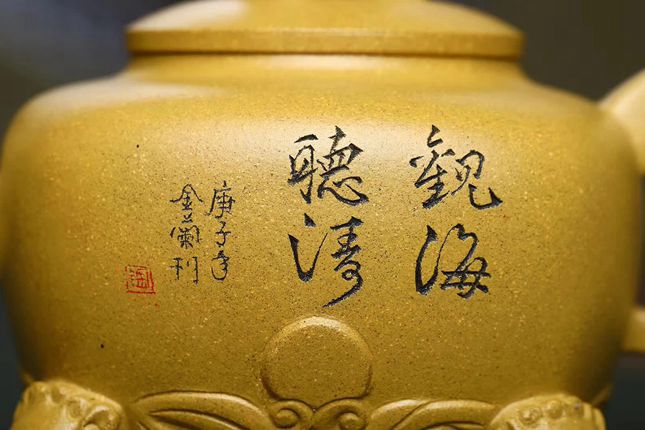 觀海
聽濤
庚子年
金蘭刊